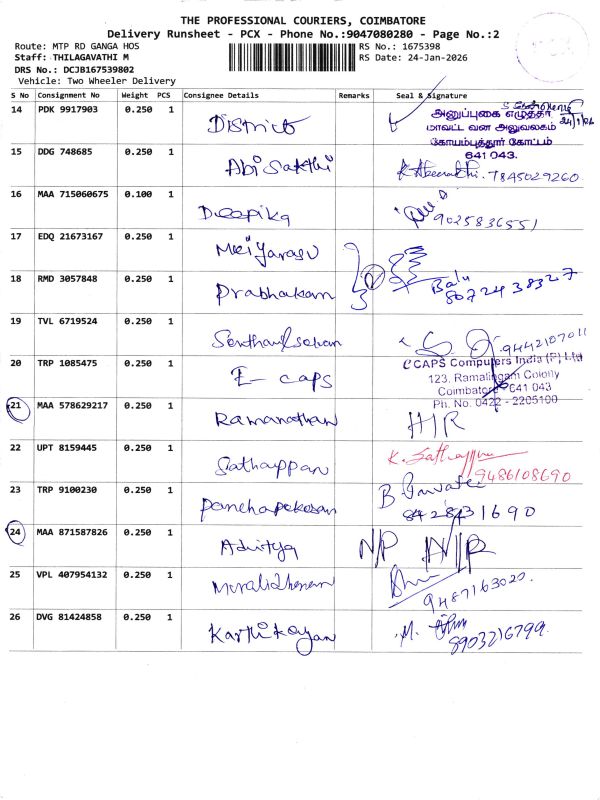 THE PROFESSIONAL COURIERS, COIMBATORE
Delivery Runsheet - PCX - Phone No.:9047080280 - Page No.:2
Route: MTP RD GANGA HOS
RS No.: 1675398
Staff: THILAGAVATHI M
RS Date: 24-Jan-2026
DRS No.: DCJB167539802
Vehicle: Two Wheeler Delivery
S No Consignment No Weight PCS Consignee Details Remarks Seal & Signature
14 PDK 9917903 0.250 1 District
அனுப்புகை எழுத்தர்
மாவட்ட வன அலுவலகம்
கோயம்புத்தூர் கோட்டம்
641 043.
15 DDG 748685 0.250 1 Abi Sakthi 7845029260
16 MAA 715060675 0.100 1 Deepika 9025836551
17 EDQ 21673167 0.250 1
18 RMD 3057848 0.250 1 Prabhakaran Balu 8072438327
19 TVL 6719524 0.250 1
20 TRP 1085475 0.250 1 E-caps
CAPS Computers India (P) Ltd
123, Ramalingam Colony
Coimbatore - 641 043
Ph. No. 0422 - 2205100
21 MAA 578629217 0.250 1 Ramanathan
22 UPT 8159445 0.250 1 Sathappan K. Sathappan 9486108690
23 TRP 9100230 0.250 1 8428431690
24 MAA 871587826 0.250 1 Adhitya N/P
25 VPL 407954132 0.250 1 9487163020.
26 DVG 81424858 0.250 1 Karthikayan 8903216799